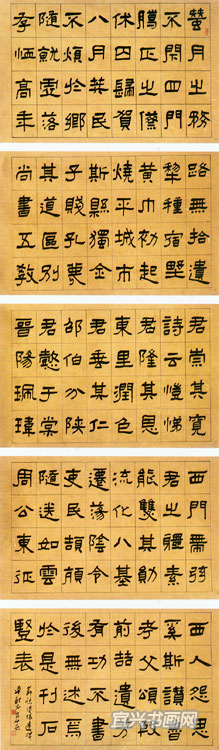 蠶月之務
不閉四門
臘正之僚
休囚歸賀
八月筭民
不煩於鄉
隨就虛落
存恤高年
路無拾遺
犁種宿野
黃巾初起
燒平城市
斯縣獨全
子賤孔蔑
其道區別
尚書五教
君崇其寬
詩云愷悌
君隆其恩
東里潤色
君垂其仁
邵伯分陝
君懿于棠
晉陽珮瑋
西門帶弦
君之體素
能雙其勛
流化八基
遷蕩陰令
吏民頡頏
隨送如雲
周公東征
西人怨思
奚斯讚魯
考父頌殷
前喆遺芳
有功不書
後無述焉
於是刊石
豎表
宜兴书画网